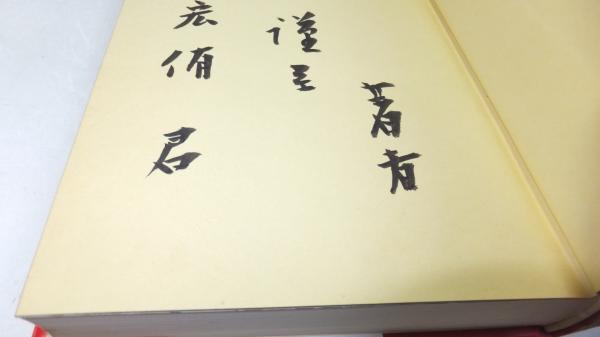 著者
謹呈
宏侑君